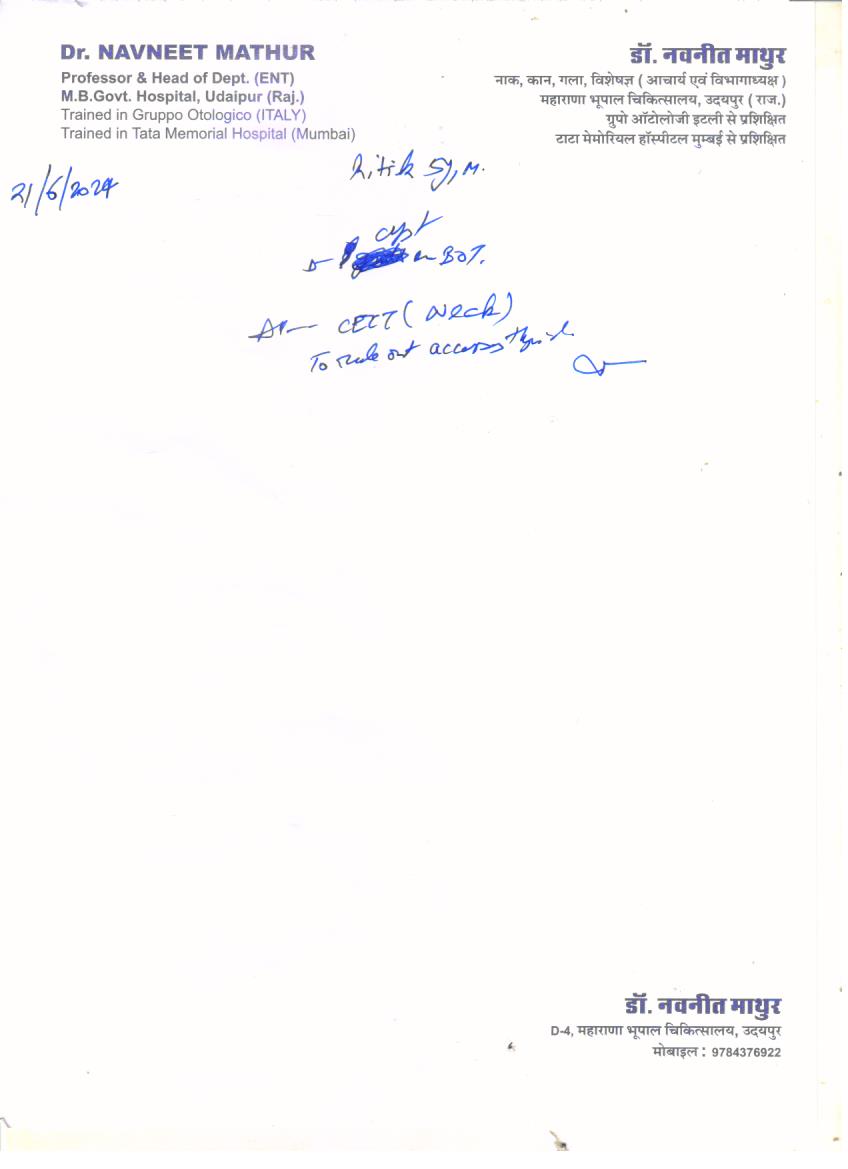 Dr. NAVNEET MATHUR
Professor & Head of Dept. (ENT)
M.B.Govt. Hospital, Udaipur (Raj.)
Trained in Gruppo Otologico (ITALY)
Trained in Tata Memorial Hospital (Mumbai)
डॉ. नवनीत माथुर
नाक, कान, गला, विशेषज्ञ ( आचार्य एवं विभागाध्यक्ष )
महाराणा भूपाल चिकित्सालय, उदयपुर ( राज.)
ग्रुपो ऑटोलोजी इटली से प्रशिक्षित
टाटा मेमोरियल हॉस्पीटल मुम्बई से प्रशिक्षित
21/6/2024
Ritik 5y, M.
cyst
BOT.
CECT (Neck)
To rule out
डॉ. नवनीत माथुर
D-4, महाराणा भूपाल चिकित्सालय, उदयपुर
मोबाइल : 9784376922